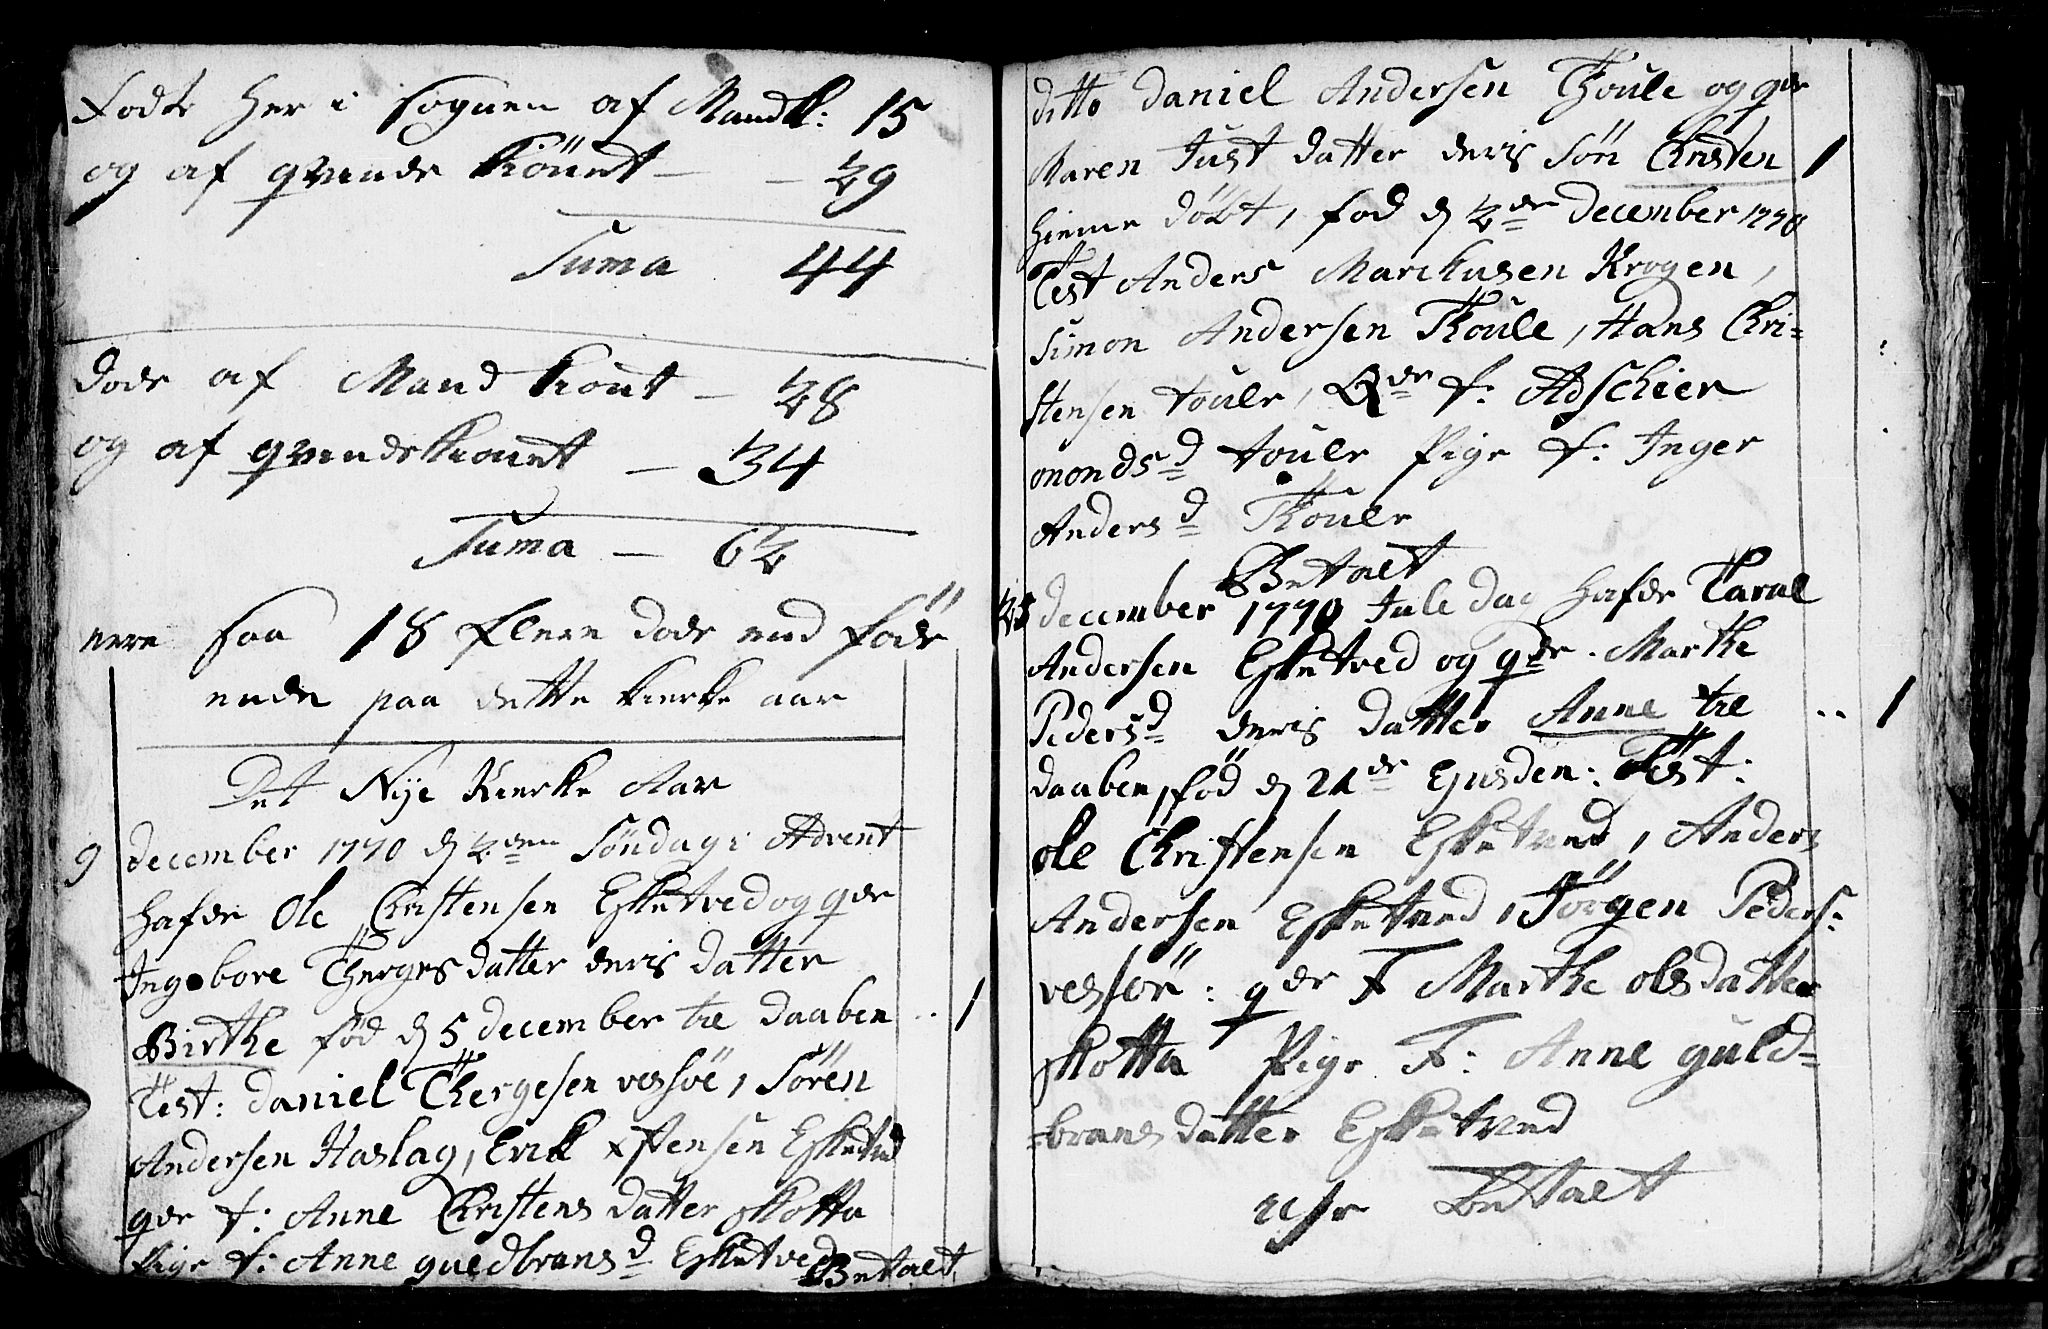 Fødte her i Sognen af Mandk: 15
og af qvinde kiönnet — — 29
Suma 44
døde af Mand kiönt — 28
og af qvindekiönnet — 34
Suma — 62
saa 18 flere døde end föd
ende paa dette kierke aar
Det Nÿe Kierke Aar
9 december 1770 d 2den Söndag i Advent
hafde Ole Christensen Esketved og qde
Ingebore Thergesdatter deris datter
Birthe fød d 5 december til daaben .. 1
Test: Daniel Thergesen vessöe, Sören
Andersen Haslag, Erik xstensen Esketved
qde f: Anne Christens datter skotta
Pige f: Anne guldbransd Esketved Betalt
ditto Daniel Andersen Thoule og qde
Maren Just datter deris Sön Christen 1
hieme döbt, fød d 2de December 1770
Test Anders Marckusen Krogen,
Simon Andersen Thoule, Hans Chri=
stensen toule, Qde f: Adschier
monds d toule Pige f: Inger
Anders d Thoule
Betalt
25 december 1770 Jule dag hafde Taral
Andersen Esketved og qde. Marthe
Peders d deris datter Anne til .. 1
daaben, fød d 21de Ejusden: Test:
Ole Christensen Esketved, Anders
Andersen Esketved, Jörgen Peders:
vessöe: qde F Marthe olsdatter
skotta Pige F: Anne guld=
=brans datter Esketved
Betalt